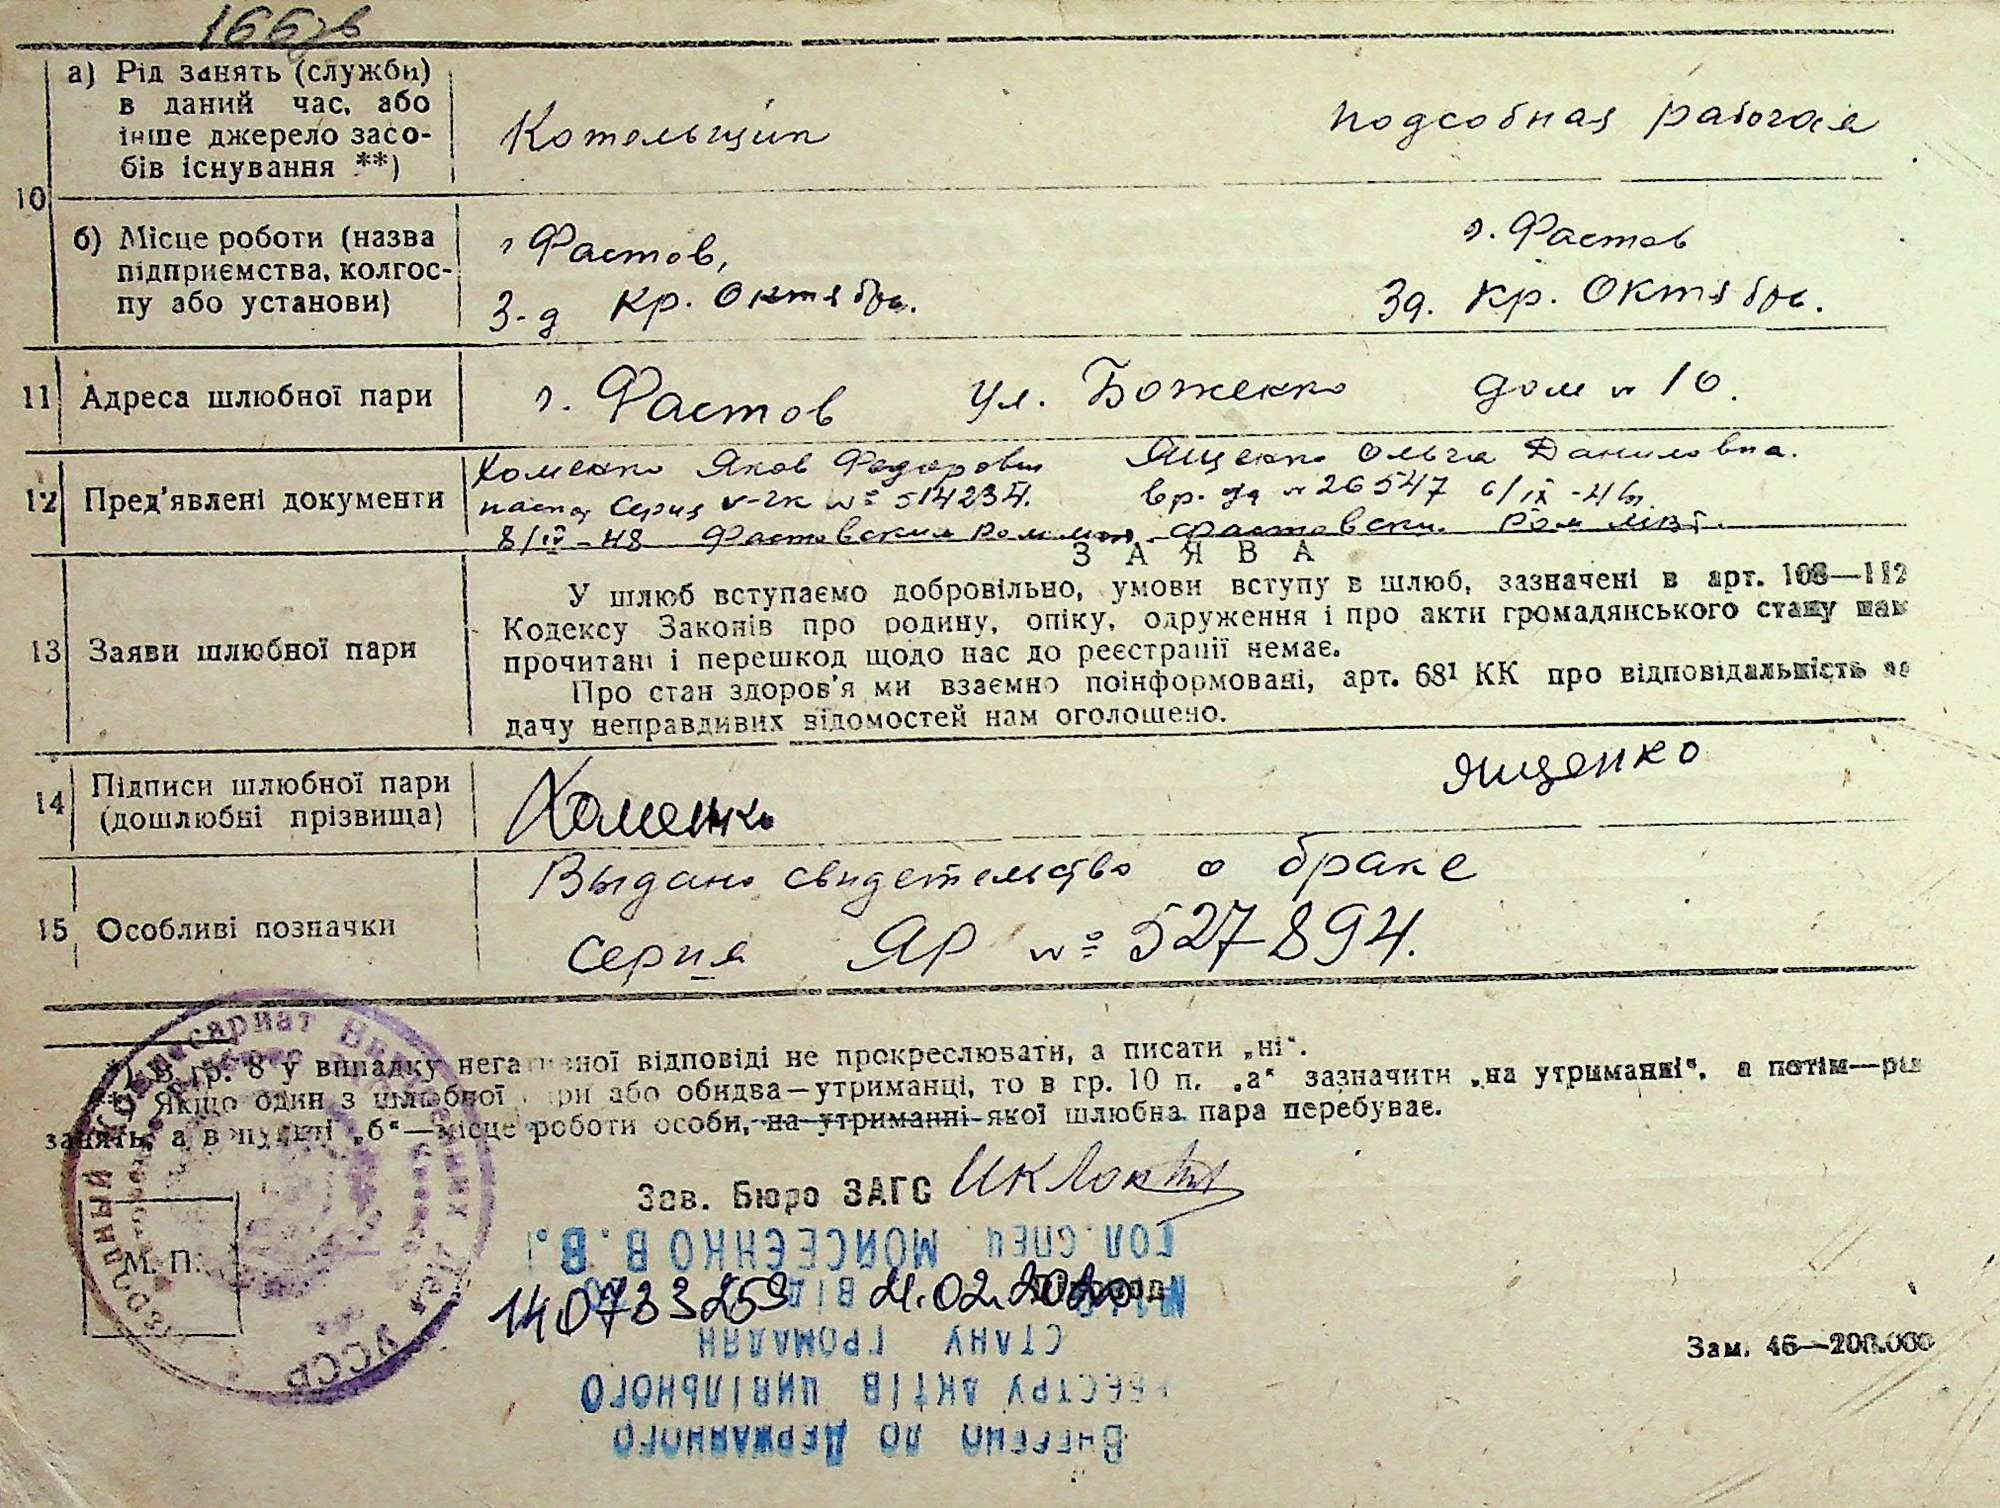 166
а) Рід занять (служби)
в даний час, або
інше джерело засо-
бів існування **)
Котельщик
подсобная рабочая
10
б) Місце роботи (назва
підприємства, колгос-
пу або установи)
г Фастов,
З-д Кр. Октябрь.
г. Фастов
Зд. Кр. Октябрь.
11 Адреса шлюбної пари
г. Фастов ул. Боженко дом № 10.
12 Пред'явлені документи
Хоменко Яков Федорович
Серия № 514234.
8/IV-48 Фастовским
Ященко Ольга Даниловна.
вр. уд № 26547
Фастовски.
З А Я В А
13 Заяви шлюбної пари
У шлюб вступаємо добровільно, умови вступу в шлюб, зазначені в арт. 108—112
Кодексу Законів про родину, опіку, одруження і про акти громадянського стану нам
прочитані і перешкод щодо нас до реєстрації немає.
Про стан здоров'я ми взаємно поінформовані, арт. 68¹ КК про відповідальність за
дачу неправдивих відомостей нам оголошено.
14 Підписи шлюбної пари
(дошлюбні прізвища)
Хоменко
Ященко
15 Особливі позначки
Выдано свидетельство о браке
Серия ЯР № 527894.
*) В гр. 8 у випадку негативної відповіді не прокреслювати, а писати „ні“.
**) Якщо один з шлюбної пари або обидва—утриманці, то в гр. 10 п. „а“ зазначити „на утриманні“, а потім—рід
занять, а в пункті „б“—місце роботи особи, на утриманні якої шлюбна пара перебуває.
Зав. Бюро ЗАГС
М. П.
Комиссариат Внутренних Дел УССР
ГОЛ.СПЕЦ. МОЙСЕЄНКО В.В.
№ 140733253 ВІД 21.02.2020
СТАНУ ГРОМАДЯН
РЕЄСТРУ АКТІВ ЦИВІЛЬНОГО
ВНЕСЕНО ДО ДЕРЖАВНОГО
Зам. 46—200.000